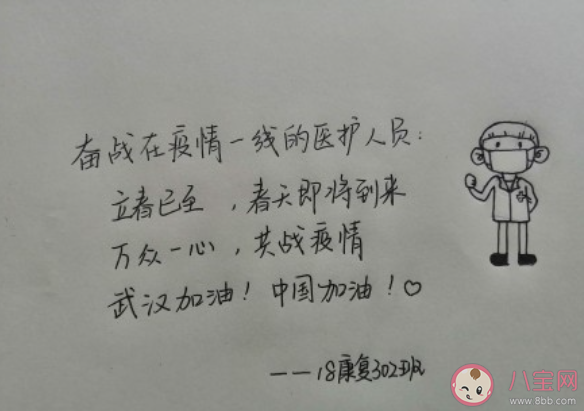 奋战在疫情一线的医护人员:
立春已至,春天即将到来
万众一心,共战疫情
武汉加油!中国加油!♡
——18康复302班
八宝网
www.8bb.com